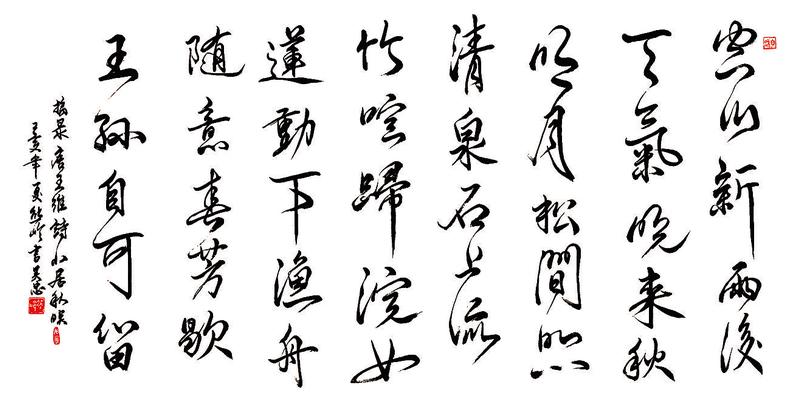 空山新雨後
天氣晚來秋
明月松間照
清泉石上流
竹喧歸浣女
蓮動下漁舟
随意春芳歇
王孫自可留
录唐王维詩山居秋暝
己亥年夏書吴忠